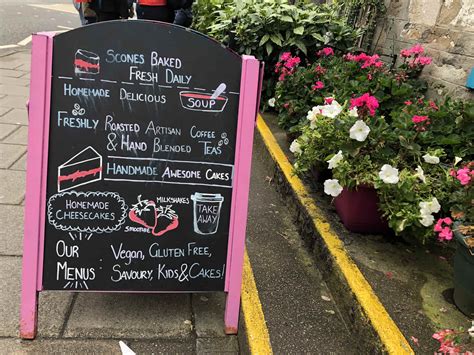 Scones Baked
Fresh Daily
Homemade Delicious
SOUP
Freshly Roasted Artisan Coffee
& Hand Blended Teas
Handmade Awesome Cakes
Homemade
Cheesecakes
Milkshakes
Smoothie
TAKE
AWAY
Our
Menus
Vegan, Gluten Free,
Savoury, Kids & Cakes!